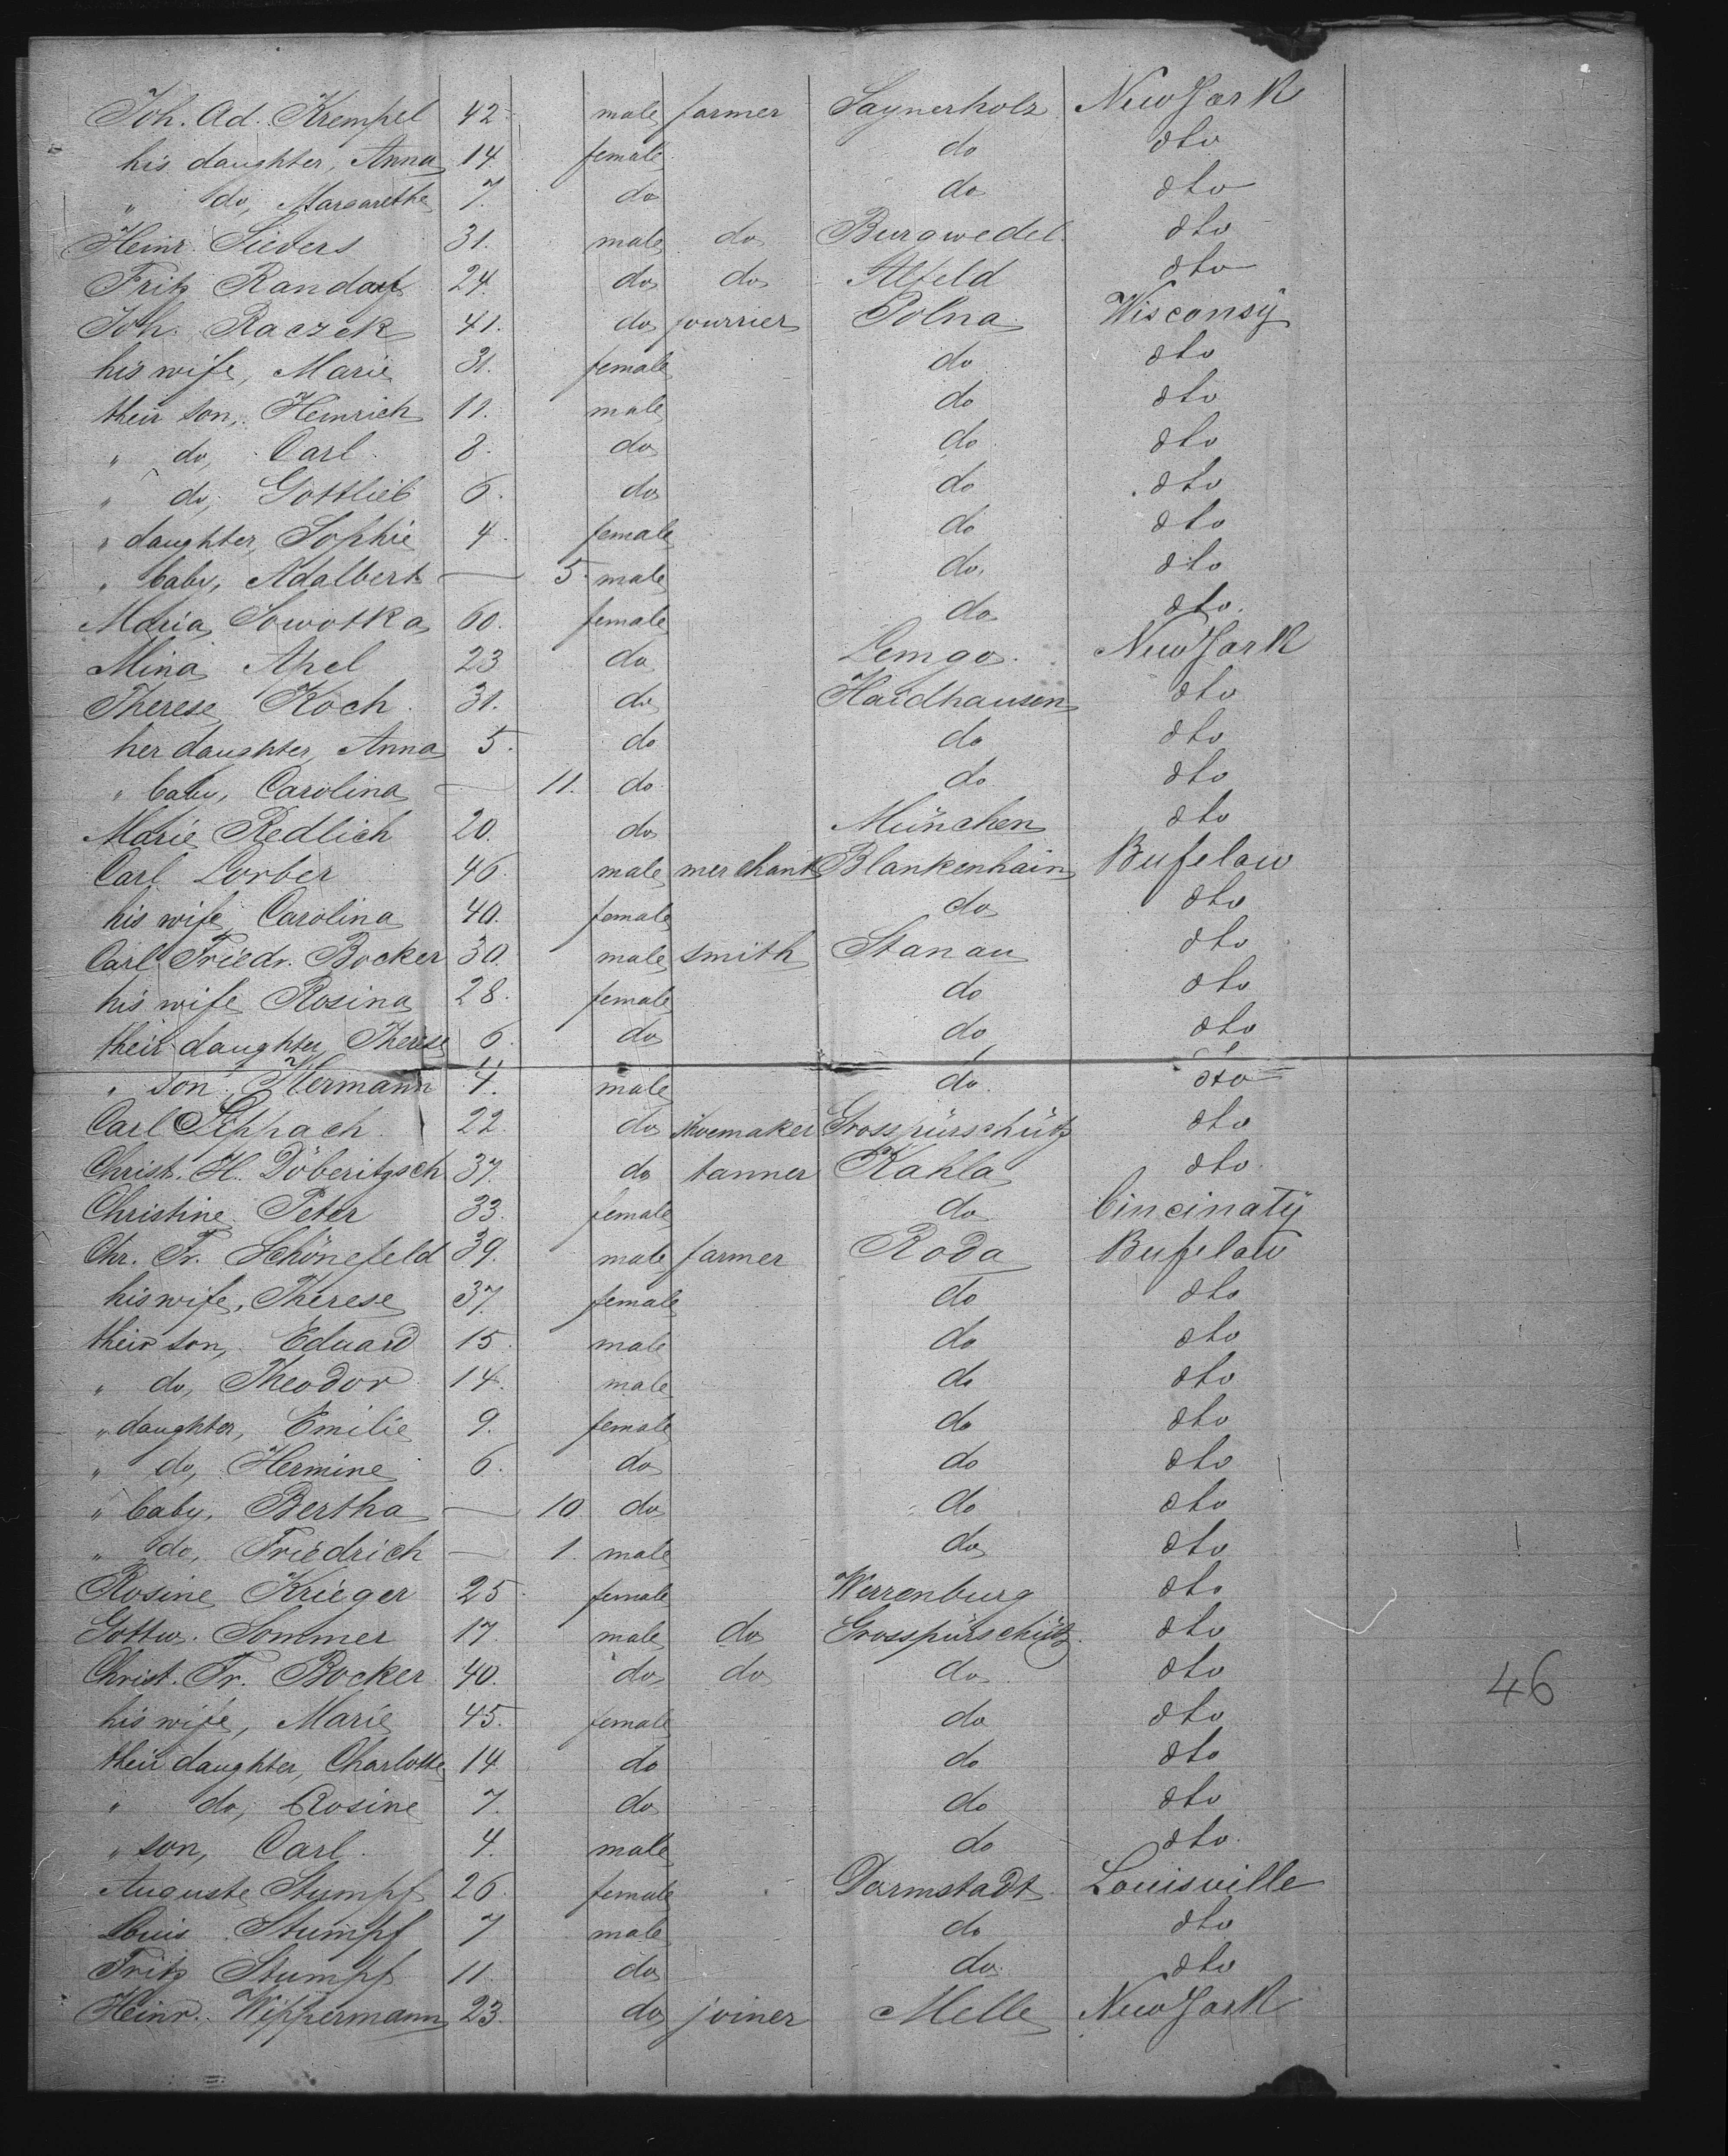 Joh. Ad. Krempel 42 male farmer Saynerholz New York
his daughter, Anna 14 female do dto
" do, Margarethe 7. do do dto
Heinr. Sievers 31. male do Burgwedel dto
Fritz Randorf 24. do do Alfeld dto
Joh. Raczek 41. do jourrier Polna Wisconsÿ
his wife, Marie 31. female do dto
their son, Heinrich 11. male do dto
" do, Carl 8. do do dto
" do, Gottlieb 6. do do dto
" daughter, Sophie 4. female do dto
" baby, Adalbert — 5. male do. dto
Maria Sowotka 60. female do dto.
Mina Apel 23 do Lemgo. New York
Therese Koch 31. do Haidhausen dto
her daughter, Anna 5. do do dto
" baby, Carolina — 11. do do dto
Marie Redlich 20. do München dto
Carl Lorber 46. male merchant Blankenhain Bufelau
his wife, Carolina 40. female do dto
Carl Friedr. Bocker 30. male smith Stanau dto
his wife Rosina 28. female do dto
their daughter, Therese 6. do do dto
" son, Hermann 4. male do. dto
Carl Lippach 22. do shoemaker Grosspürschütz dto
Christ. H. Döberitzsch 37. do tanner Kahla dto.
Christine Peter 33. female do Cincinatÿ
Chr. Fr. Schönefeld 39. male farmer Roda Bufelau
his wife, Therese 37. female do dto
their son, Eduard 15. male do dto
" do, Theodor 14. male do dto
" daughter, Emilie 9. female do dto
" do, Hermine 6. do do dto
" baby, Bertha — 10. do do dto
" do, Friedrich — 1. male do dto
Rosine Krieger 25. female Werrenburg dto
Gottw. Sommer 17. male do Grosspürschütz. dto
Christ. Fr. Bocker 40. do do do dto
46
his wife, Marie 45. female do dto
their daughter, Charlotte 14 do do dto
" do, Rosine 7. do do dto
" son, Carl 4. male do dto.
Auguste Stumpf 26. female Darmstadt Louisville
Louis Stumpf 7 male do dto
Fritz Stumpf 11. do do. dto
Heinr. Wippermann 23. do joiner Melle New York